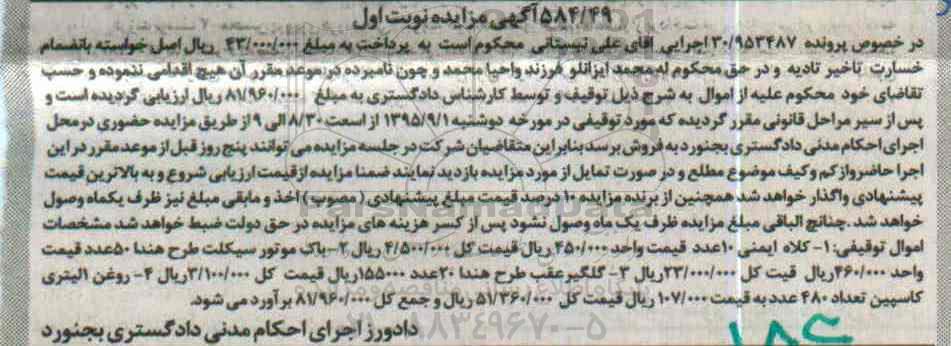 ۵۸۴/۴۹آگهی مزایده نوبت اول
در خصوص پرونده ۳۰/۹۵۳۴۸۷ اجرایی آقای علی نیستانی محکوم است به پرداخت به مبلغ ۴۳/۰۰۰/۰۰۰ ریال اصل خواسته بانضمام
خسارت تاخیر تادیه و در حق محکوم له محمد ایزانلو فرزند واحیا محمد و چون نامبرده در موعد مقرر آن هیچ اقدامی ننموده و حسب
تقاضای خود محکوم علیه از اموال به شرح ذیل توقیف و توسط کارشناس دادگستری به مبلغ ۸۱/۹۶۰/۰۰۰ ریال ارزیابی گردیده است و
پس از سیر مراحل قانونی مقرر گردیده که مورد توقیفی در مورخه دوشنبه ۱۳۹۵/۹/۱ از اسعت ۸/۳۰ الی ۹ از طریق مزایده حضوری در محل
اجرای احکام مدنی دادگستری بجنورد به فروش برسد بنابراین متقاضیان شرکت در جلسه مزایده می توانند پنج روز قبل از موعد مقرر در این
اجرا حاضر واز کم وکیف موضوع مطلع و در صورت تمایل از مورد مزایده بازدید نمایند ضمنا مزایده از قیمت ارزیابی شروع و به بالاترین قیمت
پیشنهادی واگذار خواهد شد همچنین از برنده مزایده ۱۰ درصد قیمت مبلغ پیشنهادی ( مصوب ) اخذ و مابقی مبلغ نیز ظرف یکماه وصول
خواهد شد .چنانچ الباقی مبلغ مزایده ظرف یک ماه وصول نشود پس از کسر هزینه های مزایده در حق دولت ضبط خواهد شد مشخصات
اموال توقیفی: ۱- کلاه ایمنی ۱۰عدد قیمت واحد ۴۵۰/۰۰۰ ریال قیمت کل ۴/۵۰۰/۰۰۰ ریال ۲-باک موتور سیکلت طرح هندا ۵۰عدد قیمت
واحد ۴۶۰/۰۰۰ریال قیت کل ۲۳/۰۰۰/۰۰۰ریال ۳- گلگیر عقب طرح هندا ۲۰عدد ۱۵۵۰۰۰ریال قیمت کل ۳/۱۰۰/۰۰۰ریال ۴- روغن ۱لیتری
کاسپین تعداد ۴۸۰ عدد به قیمت ۱۰۷/۰۰۰ ریال قیمت کل ۵۱/۳۶۰/۰۰۰ ریال و جمع کل ۸۱/۹۶۰/۰۰۰ برآورد می شود.
دادورز اجرای احکام مدنی دادگستری بجنورد
ParsNamadData
پایگاه اطلاع رسانی مناقصه و مزایده
۰۲۱-۸۸۳۴۹۶۷۰-۵